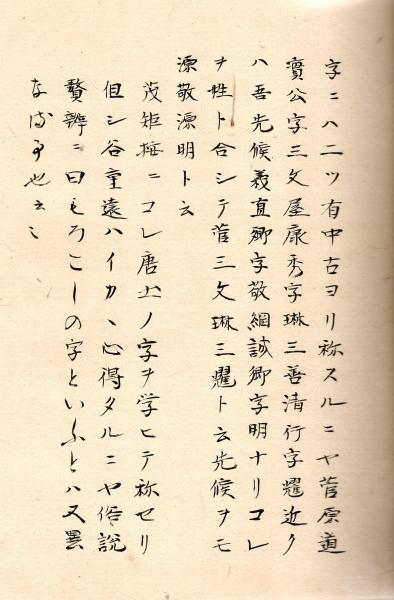 字ニハ二ツ有中古ヨリ称スルニヤ菅原道
實公字三文屋康秀字琳三善清行字耀近ク
ハ吾先候義直卿字敬綱誠卿字明ナリコレ
ヲ姓ト合シテ菅三文琳三耀ト云先候ヲモ
源敬源明ト云
茂矩按ニコレ唐土ノ字ヲ学ヒテ称セリ
但シ谷重遠ハイカヽ心得タルニヤ俗説
贅辨ニ曰もろこしの字といふとハ又異
なる事也云〻